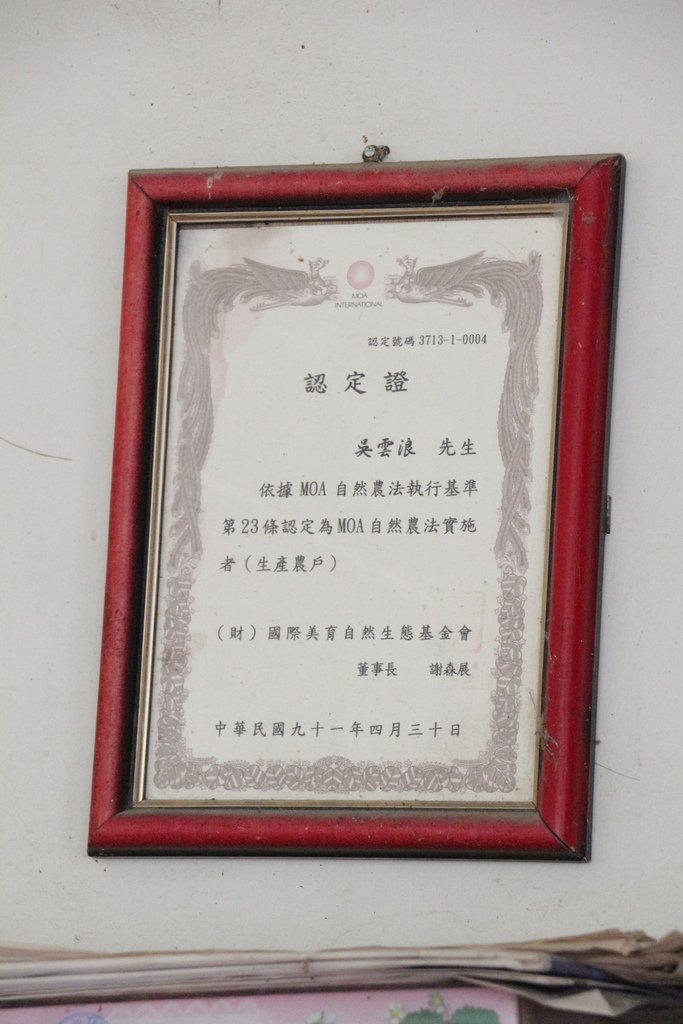 MOA
INTERNATIONAL
認定號碼 3713-1-0004
認定證
吳雲浪 先生
依據 MOA 自然農法執行基準
第 23 條認定為 MOA 自然農法實施
者（生產農戶）
（財）國際美育自然生態基金會
董事長 謝森展
中華民國九十一年四月三十日